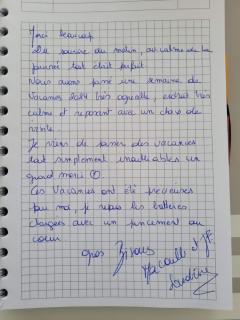 Merci beaucoup
Du sourire du matin, au calme de la
journée tout était parfait
Nous avons passé une semaine de
vacances très agréable, endroit très
calme et reposant avec un choix de
visite
Je viens de passer des vacances
tout simplement inoubliables un
grand merci
Ces vacances ont été précieuses
pour moi, je repars les batteries
chargées avec un pincement au
coeur
gros Bisous
et JF
Sandrine